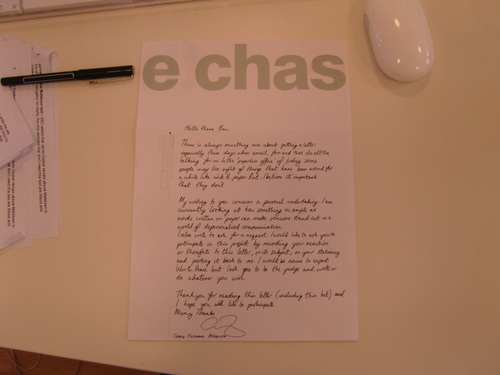 e chas
There is always something nice about getting a letter,
especially these days when email, fax and text do all the
talking for us. In the 'paperless office' of today some
people may lose sight of things that have been around for
a while like ink & paper but I believe it important
that they don't.
My writing to you concerns a personal undertaking. I am
currently looking at how something as simple as
words written on paper can make someone stand out in a
world of depersonalised communication.
I also write to ask for a regard. I would like to ask you to
participate in this project by recording your reaction
or thoughts to this letter, or its subject, on your stationery
and posting it back to me. I would be naive to expect
but ask you to be the judge and write or
do whatever you wish.
Thank you for reading this letter (including this bit) and
I hope you will like to participate
Many Thanks